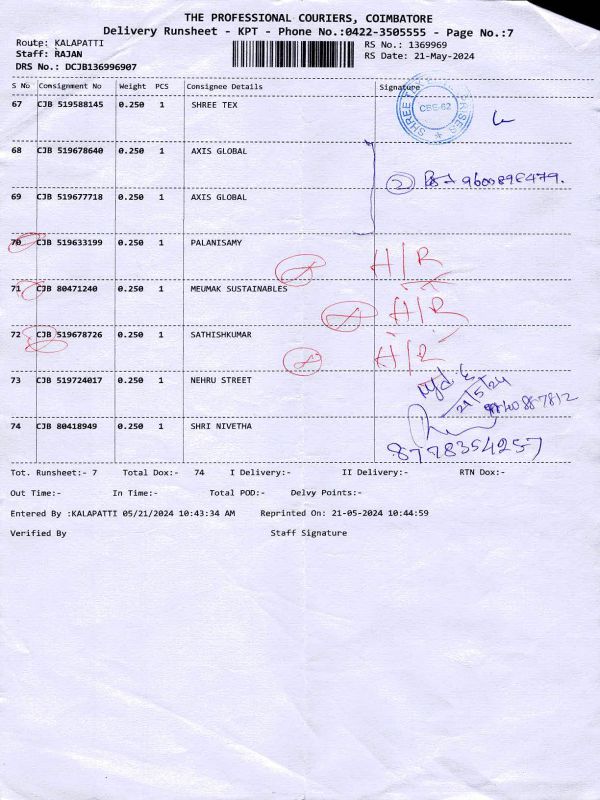 THE PROFESSIONAL COURIERS, COIMBATORE
Delivery Runsheet - KPT - Phone No.:0422-3505555 - Page No.:7
Route: KALAPATTI RS No.: 1369969
Staff: RAJAN RS Date: 21-May-2024
DRS No.: DCJB136996907
S No Consignment No Weight PCS Consignee Details Signature
67 CJB 519588145 0.250 1 SHREE TEX
CBE-62
68 CJB 519678640 0.250 1 AXIS GLOBAL
2
69 CJB 519677718 0.250 1 AXIS GLOBAL
70 CJB 519633199 0.250 1 PALANISAMY H/R
71 CJB 80471240 0.250 1 MEUMAK SUSTAINABLES H/R
72 CJB 519678726 0.250 1 SATHISHKUMAR H/R
73 CJB 519724017 0.250 1 NEHRU STREET
21/5/24
74 CJB 80418949 0.250 1 SHRI NIVETHA
8778354257
Tot. Runsheet:- 7 Total Dox:- 74 I Delivery:- II Delivery:- RTN Dox:-
Out Time:- In Time:- Total POD:- Delvy Points:-
Entered By :KALAPATTI 05/21/2024 10:43:34 AM Reprinted On: 21-05-2024 10:44:59
Verified By Staff Signature